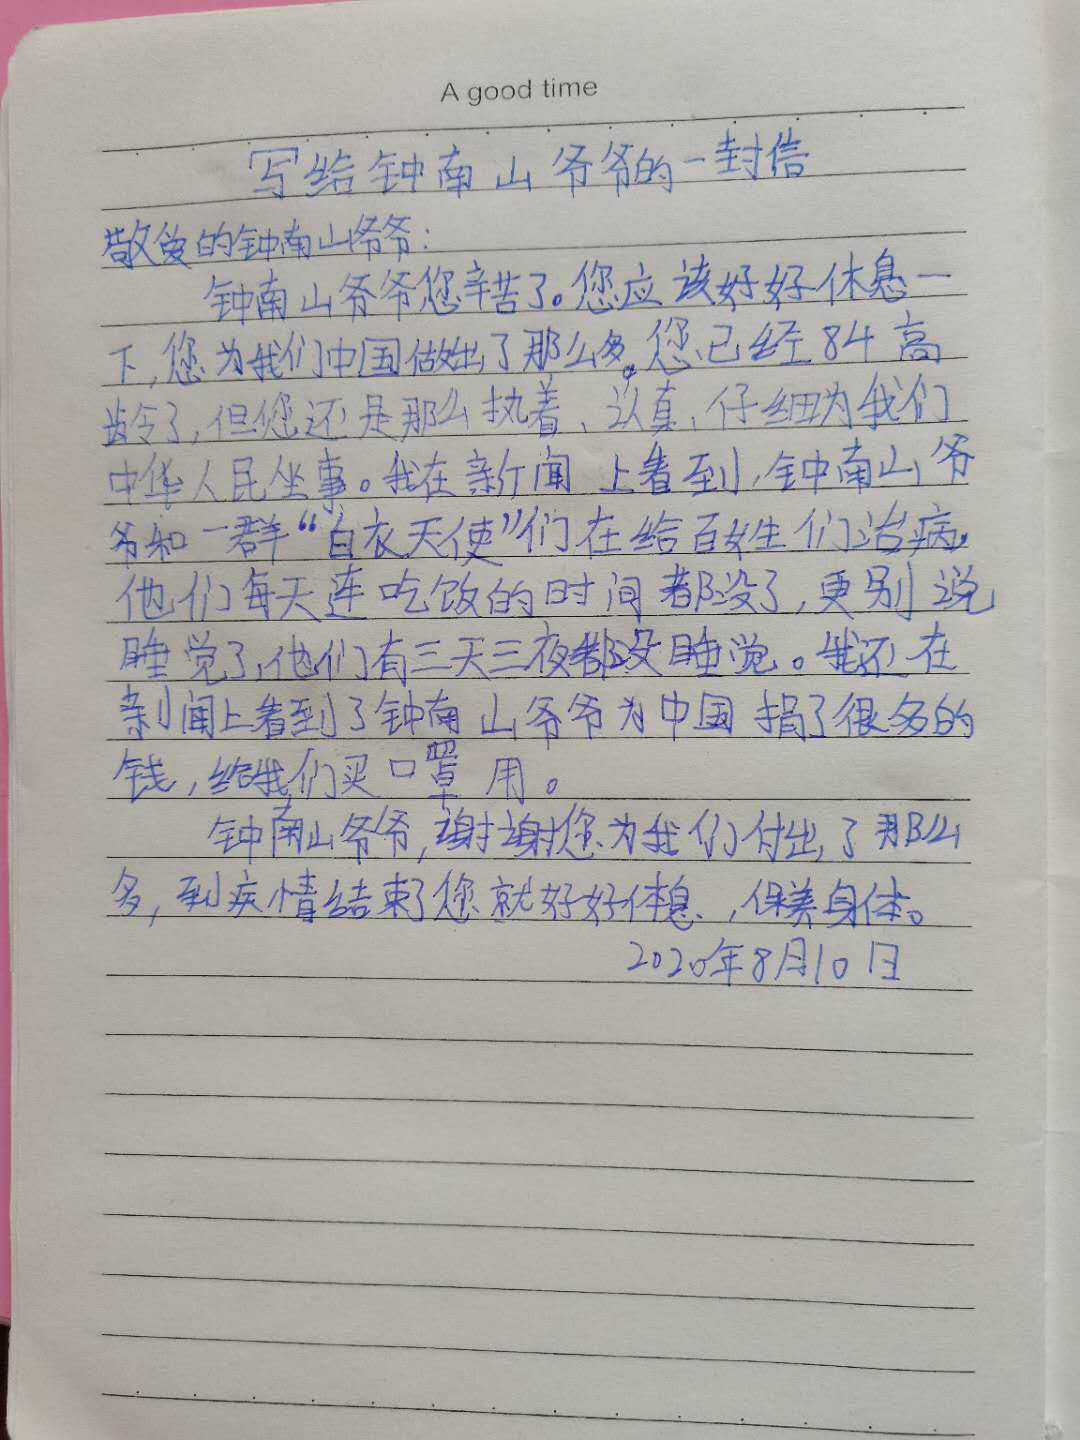 A good time
写给钟南山爷爷的一封信
敬爱的钟南山爷爷：
钟南山爷爷您辛苦了。您应该好好休息一
下，您为我们中国做出了那么多。您已经84高
龄了，但您还是那么执着、认真、仔细为我们
中华人民坐事。我在新闻上看到，钟南山爷
爷和一群“白衣天使”们在给百姓们治病，
他们每天连吃饭的时间都没了，更别说
睡觉了，他们有三天三夜都没睡觉。我还在
新闻上看到了钟南山爷爷为中国捐了很多的
钱，给我们买口罩用。
钟南山爷爷，谢谢您为我们付出了那么
多，到疾情结束了您就好好休息，保养身体。
2020年8月10日